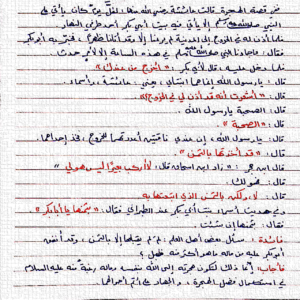 من قصة الهجرة. قالت عائشة رضي الله عنها: لقلّ يوم كان يأتي على
النبي صلى الله عليه وسلم إلا يأتي فيه بيت أبي بكر أحد طرفي النهار
فلما أذن له في الخروج إلى المدينة لم يرعنا إلا وقد أتانا ظهراً، فخبر به أبو بكر
فقال: ما جاءنا النبي صلى الله عليه وسلم في هذه الساعة إلا لأمر حدث.
فلما دخل عليه، قال لأبي بكر: «أخرج من عندك»
قال: يا رسول الله إنما هما ابنتاي، يعني: عائشة، وأسماء.
قال: «أشعرت أنه قد أذن لي في الخروج؟».
قال: الصحبة يا رسول الله.
قال: «الصحبة»
قال: يا رسول الله، إن عندي ناقتين أعددتهما للخروج، فخذ إحداهما.
قال: «قد أخذتها بالثمن»
قال ابن حجر: «زاد ابن إسحاق قال: لا أركب بعيراً ليس هو لي»
قال: هو لك!
قال: لا، ولكن بالثمن الذي ابتعتها به
وفي حديث أسماء بنت أبي بكر عند الطبراني فقال: «بثمنها يا أبا بكر»
فقال: بثمنها إن شئت.
فائدة: سئل بعض أهل العلم: لِمَ لم يقبلها إلا بالثمن، وقد أنفق
أبو بكر عليه من ماله ما هو أكثر فقبل؟
فأجاب: إنما ذلك لتكون هجرته إلى الله بنفسه وماله رغبة منه عليه السلام
في استكمال فضل الهجرة، والجهاد على أتم أحوالهما.